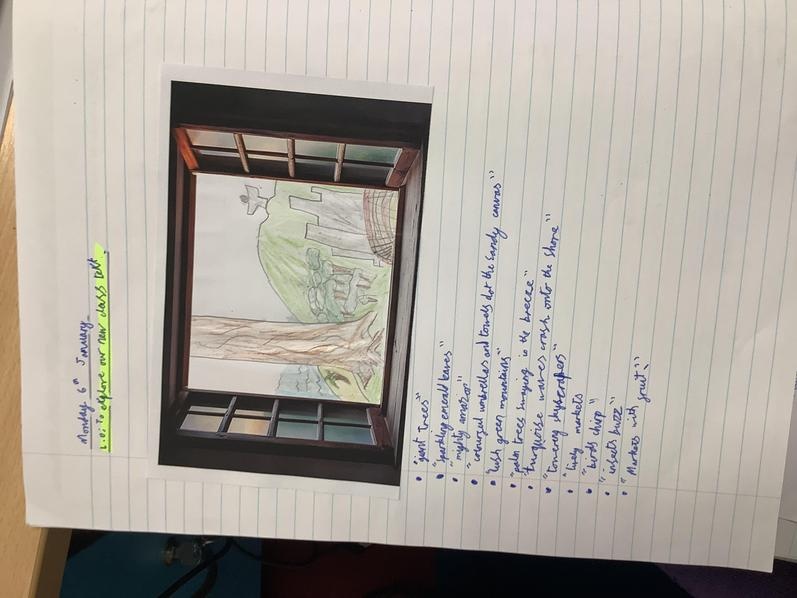 Monday 6th January
L.O: To explore our new class text.
• "giant trees"
• "sparkling emerald leaves"
• "mighty amazon"
• "colourful umbrellas and towels dot the sandy canvas"
• "lush green mountains"
• "palm trees swaying in the breeze"
• "turquoise waves crash onto the shore"
• "towering skyscrapers"
• "lively markets
• "birds chirp"
• "insects buzz"
• "Markets with fruit"